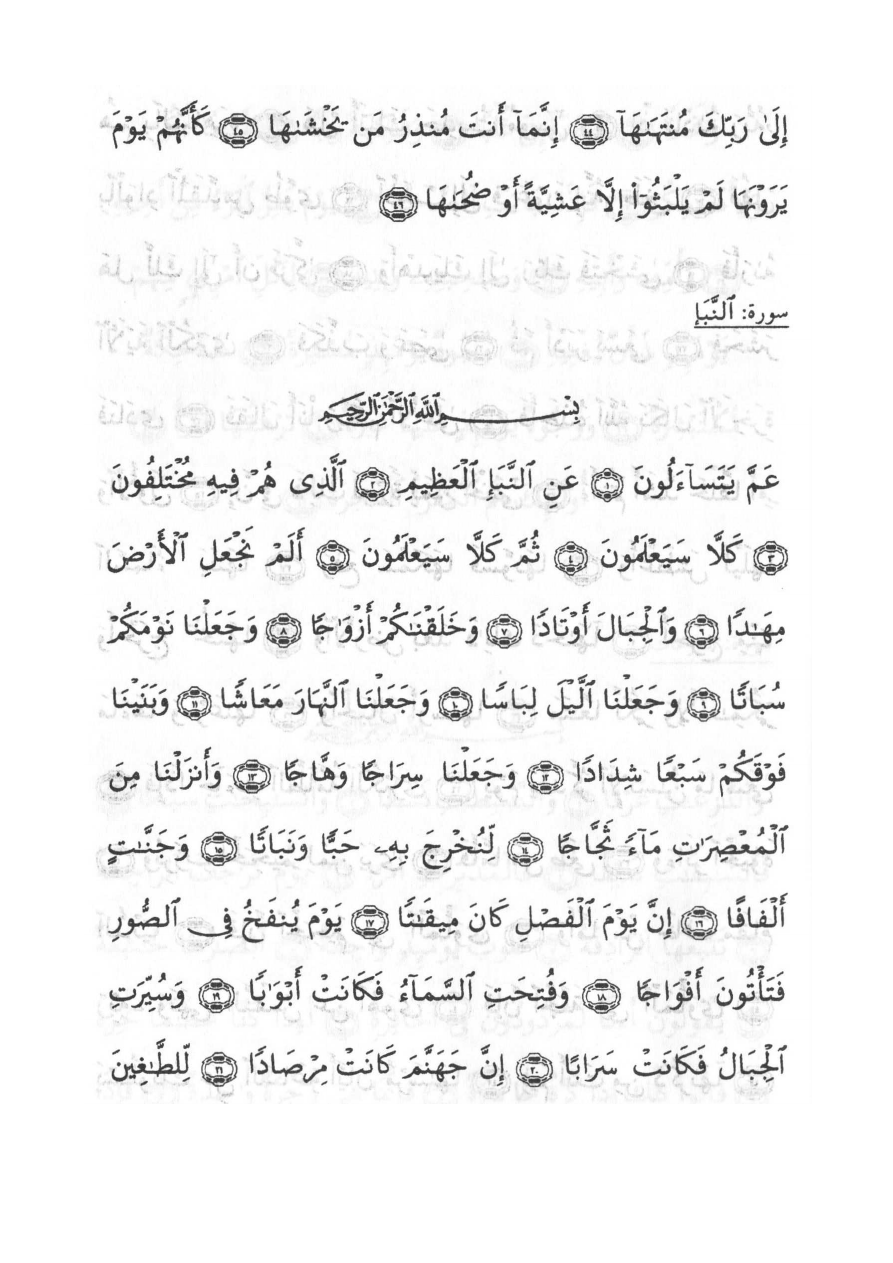 إِلَىٰ رَبِّكَ مُنتَهَىٰهَآ ﴿٤٤﴾ إِنَّمَآ أَنتَ مُنذِرُ مَن يَخْشَىٰهَا ﴿٤٥﴾ كَأَنَّهُمْ يَوْمَ
يَرَوْنَهَا لَمْ يَلْبَثُوٓا۟ إِلَّا عَشِيَّةً أَوْ ضُحَىٰهَا ﴿٤٦﴾
سورة: ٱلنَّبَإِ
بِسْمِ ٱللَّهِ ٱلرَّحْمَٰنِ ٱلرَّحِيمِ
عَمَّ يَتَسَآءَلُونَ ﴿١﴾ عَنِ ٱلنَّبَإِ ٱلْعَظِيمِ ﴿٢﴾ ٱلَّذِى هُمْ فِيهِ مُخْتَلِفُونَ
﴿٣﴾ كَلَّا سَيَعْلَمُونَ ﴿٤﴾ ثُمَّ كَلَّا سَيَعْلَمُونَ ﴿٥﴾ أَلَمْ نَجْعَلِ ٱلْأَرْضَ
مِهَٰدًا ﴿٦﴾ وَٱلْجِبَالَ أَوْتَادًا ﴿٧﴾ وَخَلَقْنَٰكُمْ أَزْوَٰجًا ﴿٨﴾ وَجَعَلْنَا نَوْمَكُمْ
سُبَاتًا ﴿٩﴾ وَجَعَلْنَا ٱلَّيْلَ لِبَاسًا ﴿١٠﴾ وَجَعَلْنَا ٱلنَّهَارَ مَعَاشًا ﴿١١﴾ وَبَنَيْنَا
فَوْقَكُمْ سَبْعًا شِدَادًا ﴿١٢﴾ وَجَعَلْنَا سِرَاجًا وَهَّاجًا ﴿١٣﴾ وَأَنزَلْنَا مِنَ
ٱلْمُعْصِرَٰتِ مَآءً ثَجَّاجًا ﴿١٤﴾ لِّنُخْرِجَ بِهِۦ حَبًّا وَنَبَاتًا ﴿١٥﴾ وَجَنَّٰتٍ
أَلْفَافًا ﴿١٦﴾ إِنَّ يَوْمَ ٱلْفَصْلِ كَانَ مِيقَٰتًا ﴿١٧﴾ يَوْمَ يُنفَخُ فِى ٱلصُّورِ
فَتَأْتُونَ أَفْوَاجًا ﴿١٨﴾ وَفُتِحَتِ ٱلسَّمَآءُ فَكَانَتْ أَبْوَٰبًا ﴿١٩﴾ وَسُيِّرَتِ
ٱلْجِبَالُ فَكَانَتْ سَرَابًا ﴿٢٠﴾ إِنَّ جَهَنَّمَ كَانَتْ مِرْصَادًا ﴿٢١﴾ لِّلطَّٰغِينَ